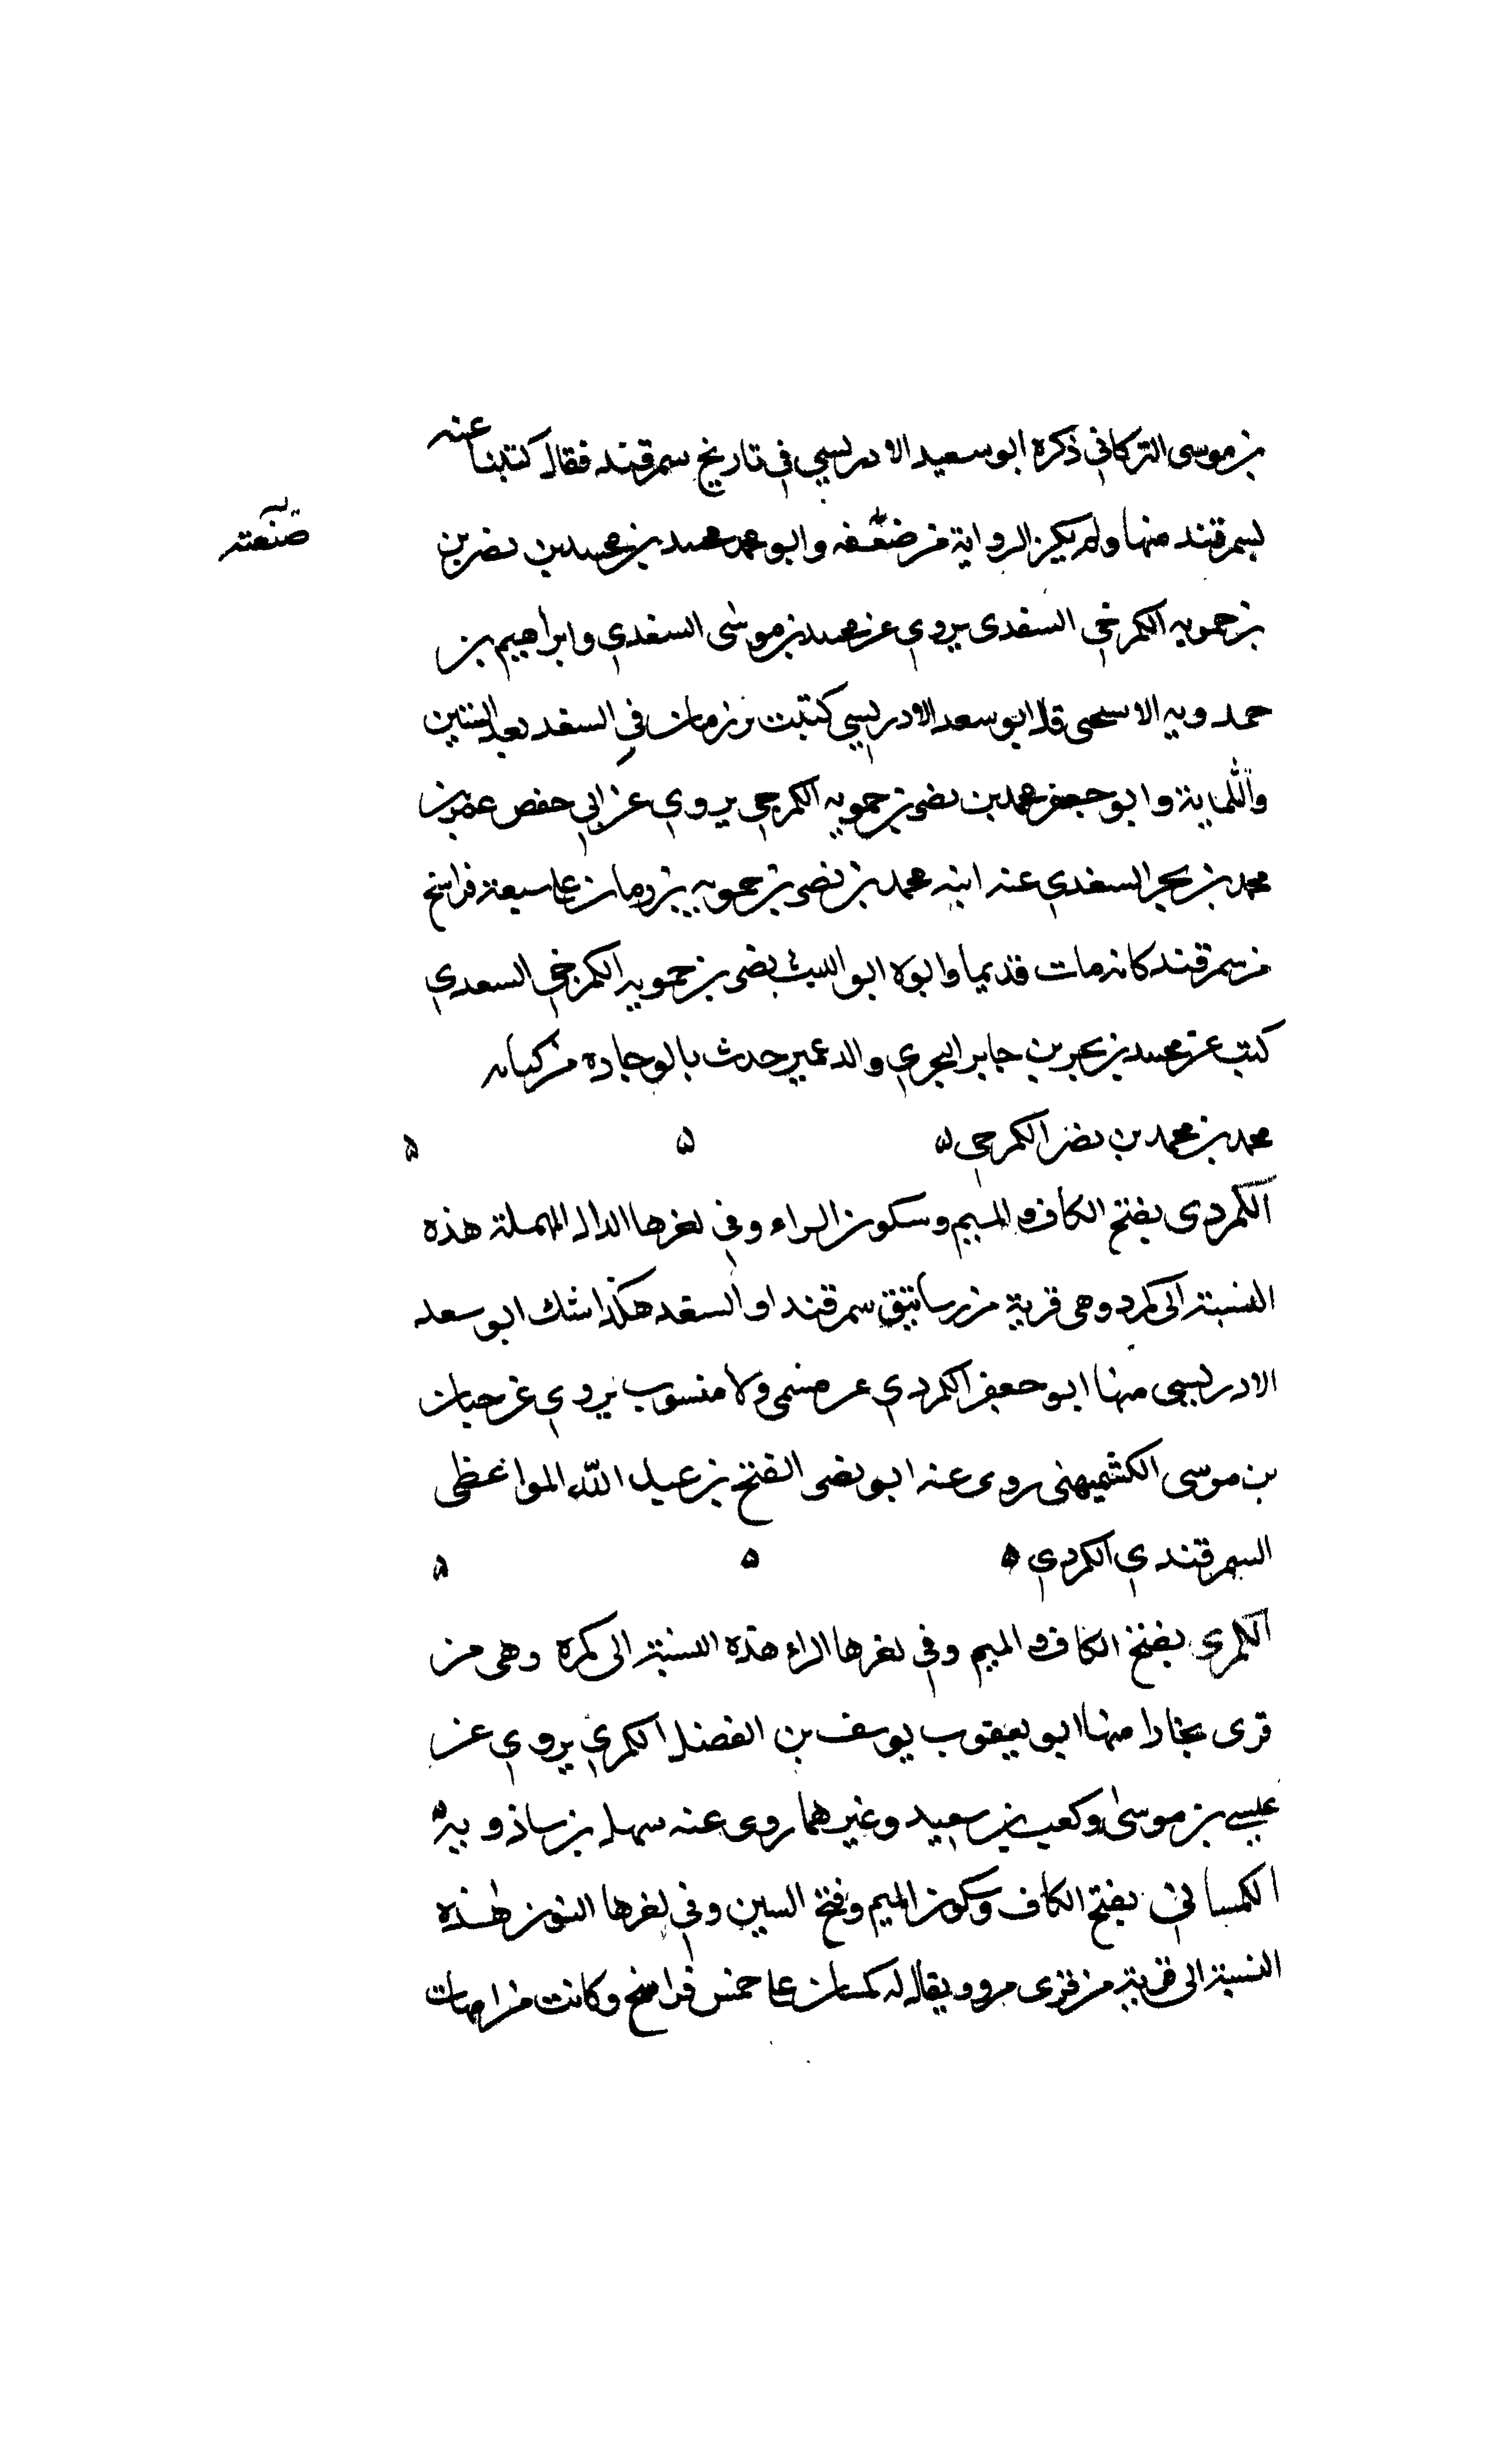 بن موسى التركاني ذكره ابو سعيد الادريسي في تاريخ سمرقند فقال كتبنا عنه
بسمرقند منها ولم يكن الرواية من ضعفه وابو محمد محمد بن محمد بن نصر بن
صنعته
بن حمويه الكمرخي السغدي يروي عن محمد بن موسى السغدي وابراهيم بن
حمدويه الاسحى قال ابو سعد الادريسي كتبت بزرمان في السغد بعد الستين
والثلماية وابو جعفر محمد بن نصر بن حمويه الكمرجي يروي عن ابي حفص عمر بن
محمد بن بحر السغدي عنه ابنه محمد بن نصر بن حمويه بزرمان على سبعة فراسخ
من سمرقند كانه مات قديما وابوه ابو الليث نصر بن حمويه الكمرجي السعدي
كتب عن محمد بن بحر بن جابر البحري والد عمر حدث بالوجاده من كتابه
محمد بن محمد بن نصر الكمرجي ه ه ه
الكمردى بفتح الكاف والميم وسكون الراء وفي اخرها الدال المهملة هذه
النسبة الى كمرد وهى قرية من رساتيق سمرقند او السغد هكذا شك ابو سعد
الادريسي منها ابو جعفر الكمردي غير مسمى ولا منسوب يروي عن حبان
بن موسى الكشميهنى روى عنه ابو نصر الفتح بن عبد الله المواعظى
السمرقندي الكمردي ه ه ه
الكمرى بفتح الكاف والميم وفي اخرها الراء هذه النسبة الى كمرة وهى من
قرى بخارا منها ابو يعقوب يوسف بن الفضل الكمري يروي عن
عيسى بن موسى وكعب بن سعيد وغيرهما روى عنه سهل بن شاذويه ه
الكمساني بفتح الكاف وسكون الميم وفتح السين وفي اخرها النون هذه
النسبة الى قرية من قرى مرو ويقال له كمسان على خمس فراسخ وكانت من امهات